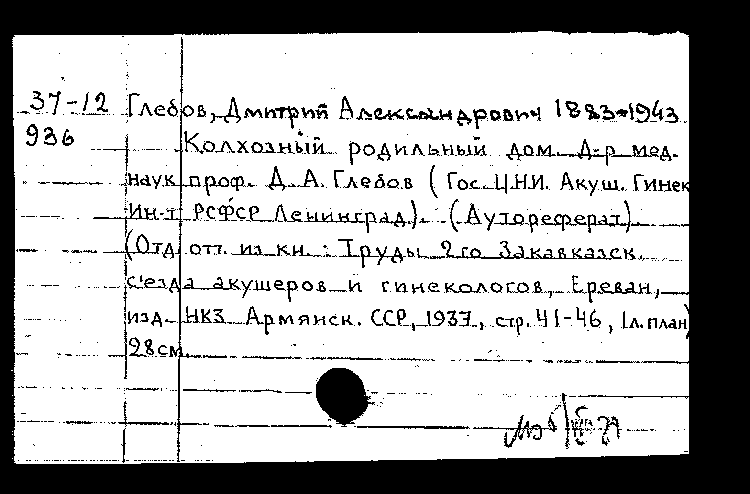 37-12 Глебов, Дмитрий Александрович 1883-1943
936 Колхозный родильный дом. Д-р мед.
наук проф. Д. А. Глебов (Гос. Ц.Н.И. Акуш. Гинек
Ин-т РСФСР Ленинград). (Аутореферат).
(Отд. отт. из кн.: Труды 2го Закавказск.
с'езда акушеров и гинекологов, Ереван,
изд. НКЗ Армянск. ССР, 1937, стр. 41-46, 1л. план)
28см.